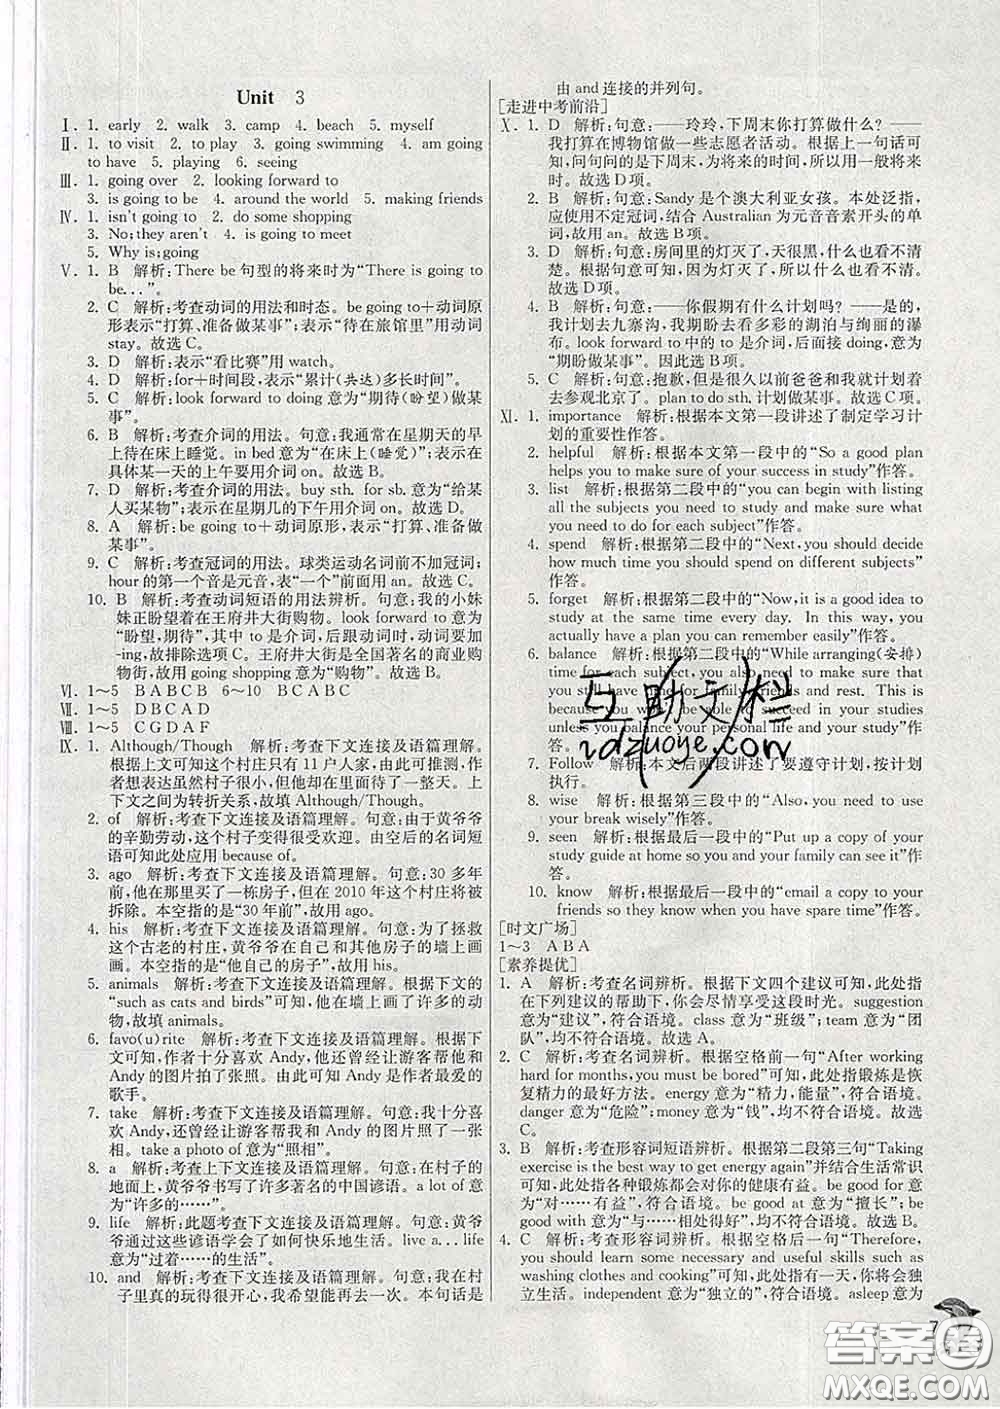 Unit 3
Ⅰ. 1. early 2. walk 3. camp 4. beach 5. myself
Ⅱ. 1. to visit 2. to play 3. going swimming 4. am going
to have 5. playing 6. seeing
Ⅲ. 1. going over 2. looking forward to
3. is going to be 4. around the world 5. making friends
Ⅳ. 1. isn't going to 2. do some shopping
3. No; they aren't 4. is going to meet
5. Why is; going
Ⅴ. 1. B 解析:There be句型的将来时为“There is going to
be...”。
2. C 解析:考查动词的用法和时态。be going to+动词原
形表示“打算、准备做某事”;表示“待在旅馆里”用动词
stay。故选C。
3. D 解析:表示“看比赛”用 watch。
4. D 解析:for+时间段,表示“累计(共达)多长时间”。
5. C 解析:look forward to doing 意为“期待(盼望)做某
事”。
6. B 解析:考查介词的用法。句意:我通常在星期天的早
上待在床上睡觉。in bed意为“在床上(睡觉)”;表示在
具体某一天的上午要用介词on。故选B。
7. D 解析:考查介词的用法。buy sth. for sb.意为“给某
人买某物”;表示在星期几的下午用介词on。故选D。
8. A 解析:be going to+动词原形,表示“打算、准备做
某事”。
9. C 解析:考查冠词的用法。球类运动名词前不加冠词;
hour的第一个音是元音,表“一个”前面用an。故选C。
10. B 解析:考查动词短语的用法辨析。句意:我的小妹
妹正盼望着在王府井大街购物。look forward to意为
“盼望,期待”,其中to是介词,后跟动词时,动词要用动
名词,故排除选项C。王府井大街是全国著名的商业购物
街,故用going shopping意为“购物”。故选B。
Ⅵ. 1～5 BABCB 6～10 BCABC
Ⅶ. 1～5 DBCAD
Ⅷ. 1～5 CGDAF
Ⅸ. 1. Although/Though 解析:考查下文连接及语篇理解。
根据上文可知这个村庄只有11户人家,由此可推测,作
者想表达虽然村子很小,但他在那里待了一整天。上下
文之间为转折关系,故填Although/Though。
2. of 解析:考查下文连接及语篇理解。句意:由于黄爷爷
的辛勤劳动,这个村子变得很受欢迎。由空后的名词短
语可知此处应用because of。
3. ago 解析:考查下文连接及语篇理解。句意:30多年
前,他在那里买了一栋房子,但在2010年这个村庄将被
拆除。本空指的是“30年前”,故用ago。
4. his 解析:考查下文连接及语篇理解。句意:为了拯救
这个古老的村庄,黄爷爷在自己和其他房子的墙上画
画。本空指的是“他自己的房子”,故用his。
5. animals 解析:考查下文连接及语篇理解。根据下文的
“such as cats and birds”可知,他在墙上画了许多的动
物,故填animals。
6. favo(u)rite 解析:考查下文连接及语篇理解。根据下
文可知,作者十分喜欢Andy,他还曾经让游客帮他和
Andy的图片拍了张照。由此可知Andy是作者最爱的
歌手。
7. take 解析:考查下文连接及语篇理解。句意:我十分喜
欢Andy,还曾经让游客帮我和Andy的图片照了一张
相。take a photo of意为“照相”。
8. a 解析:考查上下文连接及语篇理解。句意:在村子的
地面上,黄爷爷书写了许多著名的中国谚语。a lot of意
为“许多的……”。
9. life 解析:此题考查下文连接及语篇理解。句意:黄爷
爷通过这些谚语学会了如何快乐地生活。live a... life
意为“过着……的生活”。
10. and 解析:考查下文连接及语篇理解。句意:我在村
子里真的玩得很开心,我希望能再去一次。本句话是
由and连接的并列句。
[走进中考前沿]
Ⅹ. 1. D 解析:句意:——玲玲,下周末你打算做什么?——
我打算在博物馆做一些志愿者活动。根据上一句话可
知,问句问的是下周末,为将来的时间,所以用一般将来
时。故选D项。
2. B 解析:句意:Sandy是个澳大利亚女孩。本处泛指,
应使用不定冠词,结合Australian为元音音素开头的单
词,故用an。故选B项。
3. D 解析:句意:房间里的灯灭了,天很黑,什么也看不清
楚。根据句意可知,因为灯灭了,所以什么也看不清楚。
故选D项。
4. B 解析:句意:——你假期有什么计划吗?——是的,
我计划去九寨沟,我期盼去看多彩的湖泊与绚丽的瀑
布。look forward to中的to是介词,后面接doing,意为
“期盼做某事”。因此选B项。
5. C 解析:句意:抱歉,但是很久以前爸爸和我就计划着
去参观北京了。plan to do sth.计划做某事。故选C项。
Ⅺ. 1. importance 解析:根据本文第一段讲述了制定学习计
划的重要性作答。
2. helpful 解析:根据本文第一段中的“So a good plan
helps you to make sure of your success in study”作答。
3. list 解析:根据第二段中的“you can begin with listing
all the subjects you need to study and make sure what
you need to do for each subject”作答。
4. spend 解析:根据第二段中的“Next, you should decide
how much time you should spend on different subjects”
作答。
5. forget 解析:根据第二段中的“Now, it is a good idea to
study at the same time every day. In this way, you
actually have a plan you can remember easily”作答。
6. balance 解析:根据第二段中的“While arranging(安排)
time for each subject, you also need to
make time for family, friends and rest. This is
because you won't be successful in your studies
unless you balance your personal life and your study”
作答。
7. Follow 解析:本文后两段讲述了要遵守计划,按计划
执行。
8. wise 解析:根据第三段中的“Also, you need to use
your break wisely”作答。
9. seen 解析:根据最后一段中的“Put up a copy of your
study guide at home so you and your family can see it”作
答。
10. know 解析:根据最后一段中的“email a copy to your
friends so they know when you have spare time”作答。
[时文广场]
1～3 ABA
[素养提优]
1. A 解析:考查名词辨析。根据下文四个建议可知,此处指
在下列建议的帮助下,你会尽情享受这段时光。suggestion
意为“建议”,符合语境。class意为“班级”;team意为“团
队”,均不符合语境。故选A。
2. C 解析:考查名词辨析。根据空格前一句“After working
hard for months, you must be bored”可知,此处指锻炼是
恢复精力的最好方法。energy意为“精力,能量”,符合语境。
danger意为“危险”;money意为“钱”,均不符合语境。故选
C。
3. B 解析:考查形容词短语辨析。根据第二段第三句“Taking
exercise is the best way to get energy again”并结合生活常识
可知,此处指各种锻炼都会对你的健康有益。be good for意
为“对……有益”,符合语境。be good at意为“擅长”;be
good with意为“与……相处得好”,均不符合语境。故选B。
4. C 解析:考查形容词辨析。根据空格后一句“Therefore,
you should learn some necessary and useful skills such as
washing clothes and cooking”可知,此处指有一天,你会将独
立生活。independent意为“独立的”,符合语境。asleep意为
互助文栏
idzuoye.com
答案圈
MXQE.COM